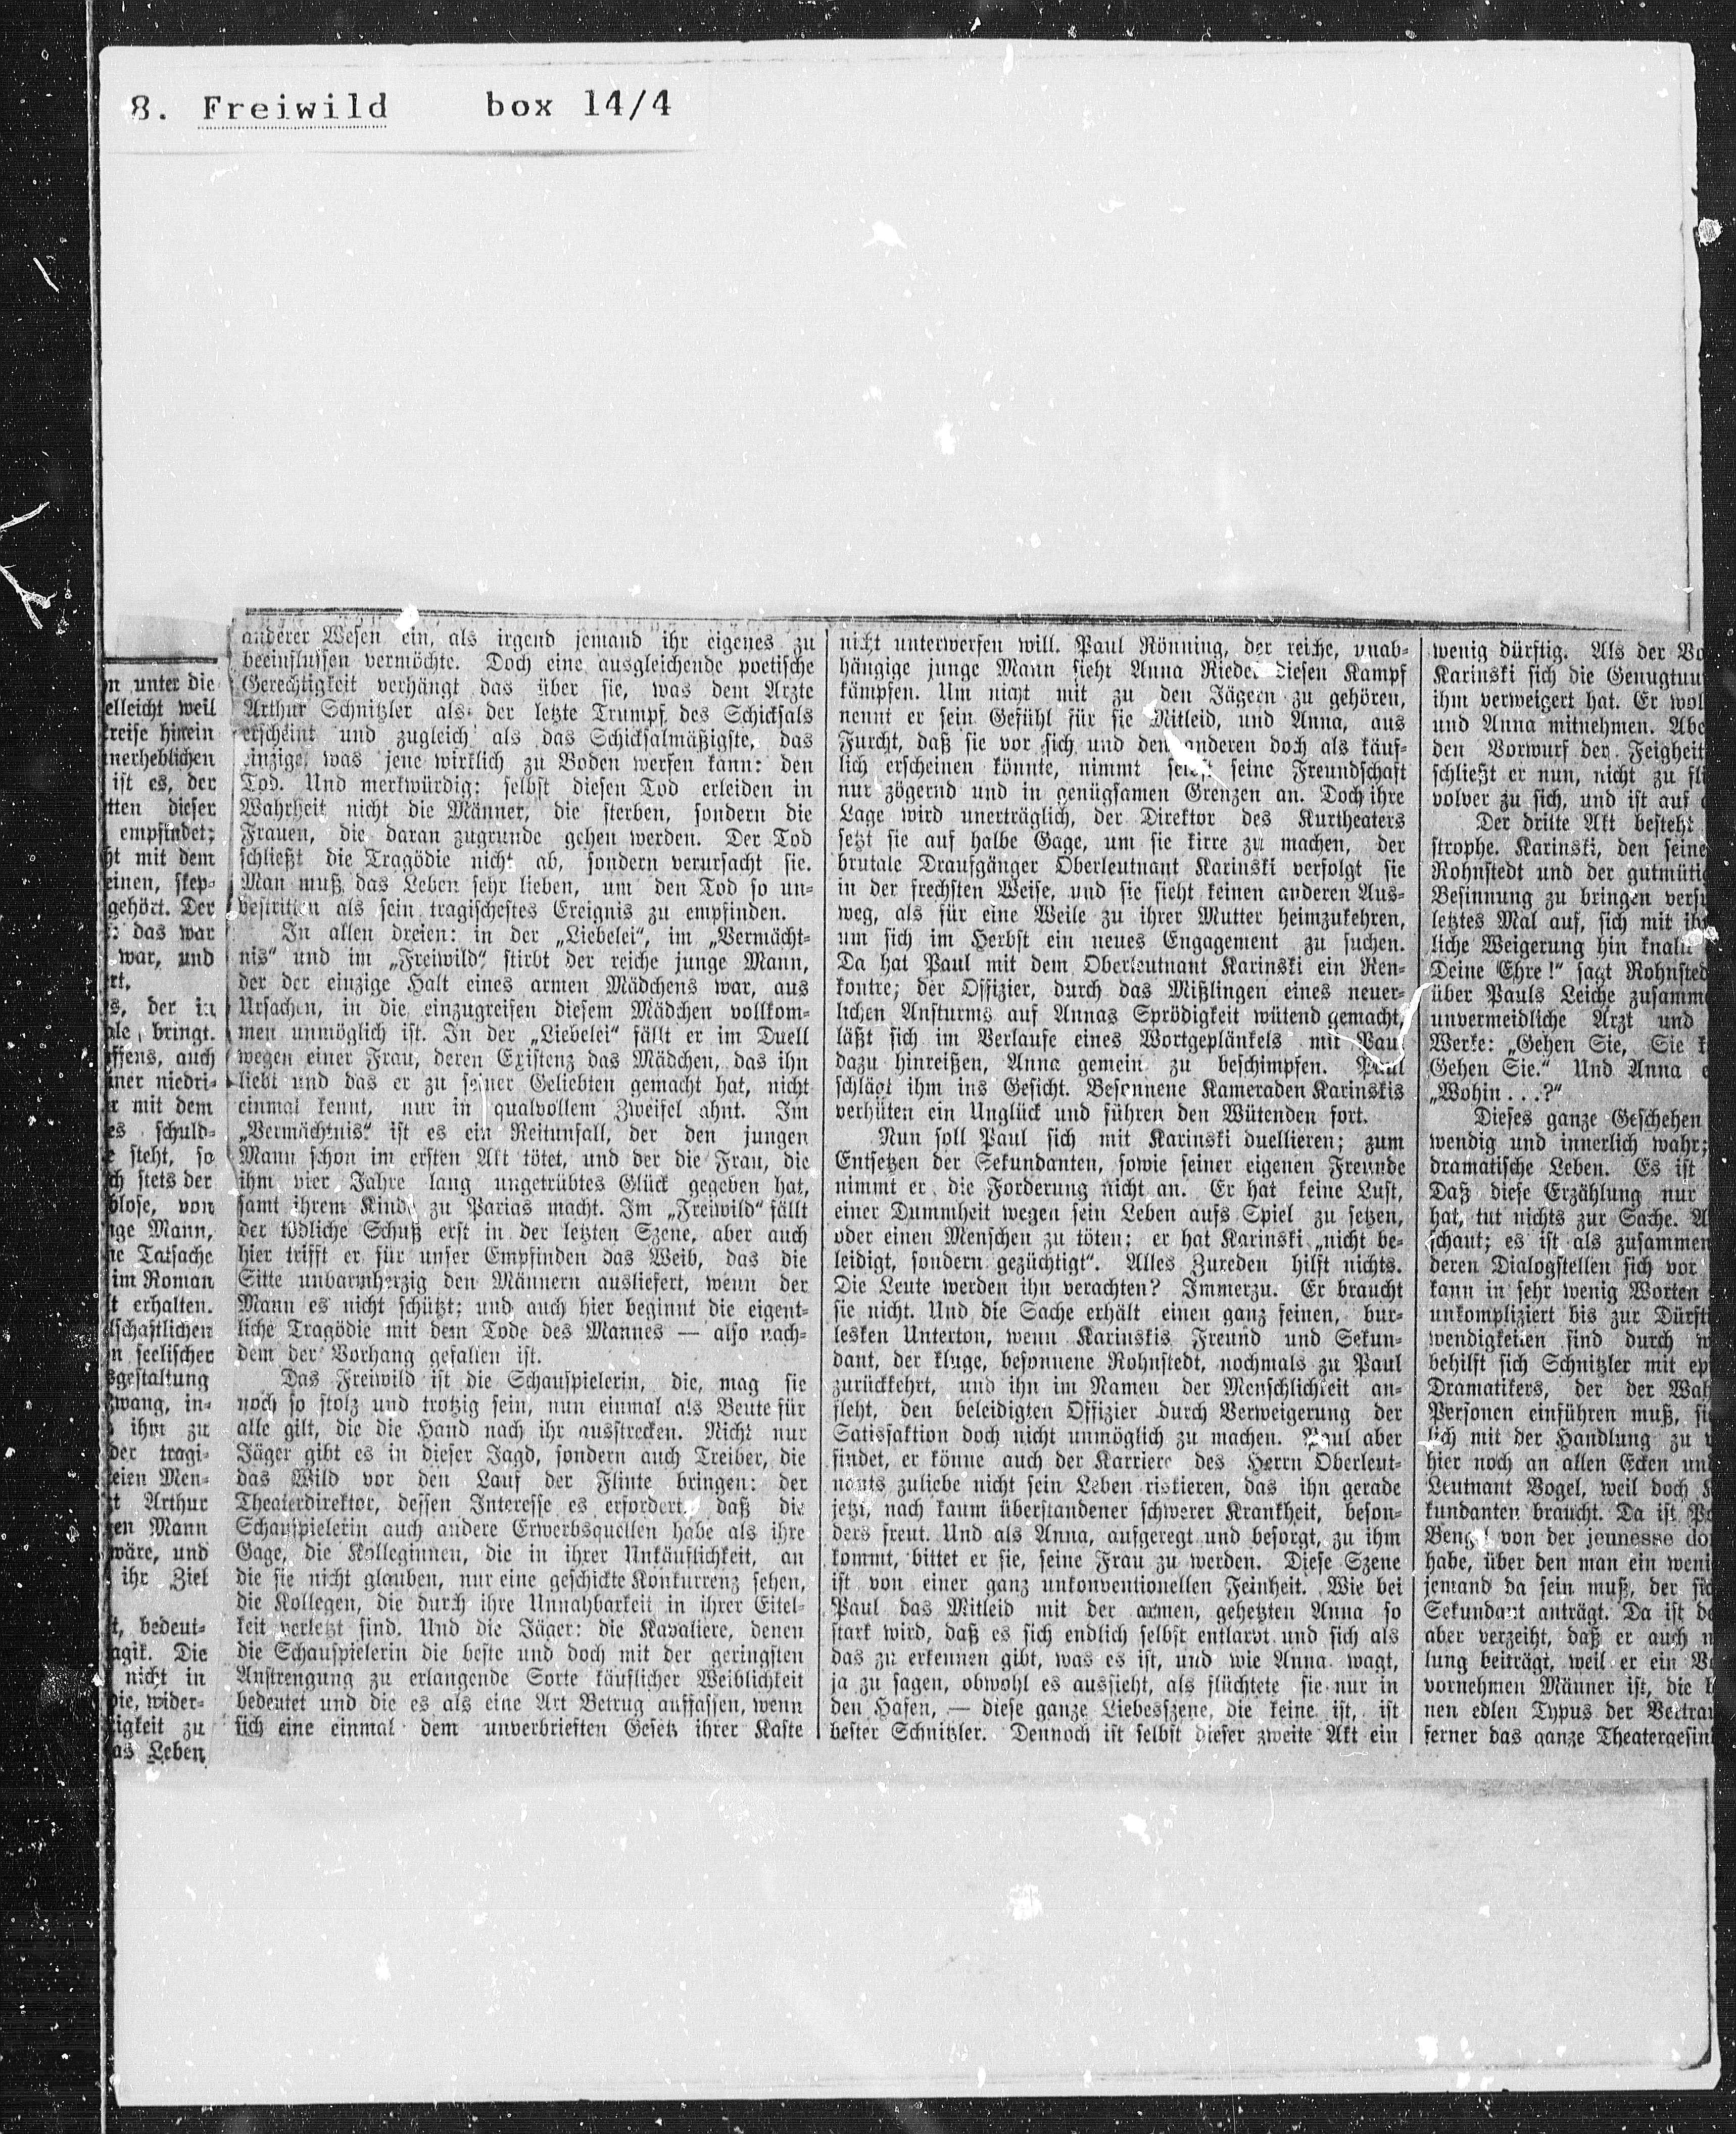 8. Freiwild box 14/4
n unter die
elleicht weil
reise hinein
nerheblichen
ist es, der
tten dieser
empfindet;
ht mit dem
einen, skep-
gehört. Der
: das war
war, und
rt.
s, der in
ale bringt.
ffens, auch
ner niedri-
r mit dem
es schuld-
steht, so
ch stets der
blose, von
ige Mann,
ne Tatsache
im Roman
t erhalten.
lschaftlichen
n seelischer
sgestaltung
zwang, in-
ihm zu
der tragi-
eien Men-
zt Arthur
en Mann
wäre, und
ihr Ziel
t, bedeut-
agik. Die
nicht in
die, wider-
igkeit zu
as Leben
anderer Wesen ein, als irgend jemand ihr eigenes zu
beeinflussen vermöchte. Doch eine ausgleichende poetische
Gerechtigkeit verhängt das über sie, was dem Arzte
Arthur Schnitzler als der letzte Trumpf des Schicksals
erscheint und zugleich als das Schicksalmäßigste, das
einzige, was jene wirklich zu Boden werfen kann: den
Tod. Und merkwürdig: selbst diesen Tod erleiden in
Wahrheit nicht die Männer, die sterben, sondern die
Frauen, die daran zugrunde gehen werden. Der Tod
schließt die Tragödie nicht ab, sondern verursacht sie.
Man muß das Leben sehr lieben, um den Tod so un-
bestritten als sein tragischestes Ereignis zu empfinden.
In allen dreien: in der „Liebelei“, im „Vermächt-
nis“ und im „Freiwild“ stirbt der reiche junge Mann,
der der einzige Halt eines armen Mädchens war, aus
Ursachen, in die einzugreifen diesem Mädchen vollkom-
men unmöglich ist. In der „Liebelei“ fällt er im Duell
wegen einer Frau, deren Existenz das Mädchen, das ihn
liebt und das er zu seiner Geliebten gemacht hat, nicht
einmal kennt, nur in qualvollem Zweifel ahnt. Im
„Vermächtnis“ ist es ein Reitunfall, der den jungen
Mann schon im ersten Akt tötet, und der die Frau, die
ihm vier Jahre lang ungetrübtes Glück gegeben hat,
samt ihrem Kind, zu Parias macht. Im „Freiwild“ fällt
der tödliche Schuß erst in der letzten Szene, aber auch
hier trifft er für unser Empfinden das Weib, das die
Sitte unbarmherzig den Männern ausliefert, wenn der
Mann es nicht schützt; und auch hier beginnt die eigent-
liche Tragödie mit dem Tode des Mannes — also nach-
dem der Vorhang gefallen ist.
Das Freiwild ist die Schauspielerin, die, mag sie
noch so stolz und trotzig sein, nun einmal als Beute für
alle gilt, die die Hand nach ihr ausstrecken. Nicht nur
Jäger gibt es in dieser Jagd, sondern auch Treiber, die
das Wild vor den Lauf der Flinte bringen: der
Theaterdirektor, dessen Interesse es erfordert, daß die
Schauspielerin auch andere Erwerbsquellen habe als ihre
Gage, die Kolleginnen, die in ihrer Unkäuflichkeit, an
die sie nicht glauben, nur eine geschickte Konkurrenz sehen,
die Kollegen, die durch ihre Unnahbarkeit in ihrer Eitel-
keit verletzt sind. Und die Jäger: die Kavaliere, denen
die Schauspielerin die beste und doch mit der geringsten
Anstrengung zu erlangende Sorte käuflicher Weiblichkeit
bedeutet und die es als eine Art Betrug auffassen, wenn
sich eine einmal dem unverbrieften Gesetz ihrer Kaste
nicht unterwerfen will. Paul Rönning, der reiche, unab-
hängige junge Mann sieht Anna Riedel diesen Kampf
kämpfen. Um nicht mit zu den Jägern zu gehören,
nennt er sein Gefühl für sie Mitleid, und Anna, aus
Furcht, daß sie vor sich und den anderen doch als käuf-
lich erscheinen könnte, nimmt selbst seine Freundschaft
nur zögernd und in genügsamen Grenzen an. Doch ihre
Lage wird unerträglich, der Direktor des Kurtheaters
setzt sie auf halbe Gage, um sie kirre zu machen, der
brutale Draufgänger Oberleutnant Karinski verfolgt sie
in der frechsten Weise, und sie sieht keinen anderen Aus-
weg, als für eine Weile zu ihrer Mutter heimzukehren,
um sich im Herbst ein neues Engagement zu suchen.
Da hat Paul mit dem Oberleutnant Karinski ein Ren-
kontre; der Offizier, durch das Mißlingen eines neuer-
lichen Ansturms auf Annas Sprödigkeit wütend gemacht,
läßt sich im Verlaufe eines Wortgeplänkels mit Paul
dazu hinreißen, Anna gemein zu beschimpfen. Paul
schlägt ihm ins Gesicht. Besonnene Kameraden Karinskis
verhüten ein Unglück und führen den Wütenden fort.
Nun soll Paul sich mit Karinski duellieren; zum
Entsetzen der Sekundanten, sowie seiner eigenen Freunde
nimmt er die Forderung nicht an. Er hat keine Lust,
einer Dummheit wegen sein Leben aufs Spiel zu setzen,
oder einen Menschen zu töten; er hat Karinski „nicht be-
leidigt, sondern gezüchtigt“. Alles Zureden hilft nichts.
Die Leute werden ihn verachten? Immerzu. Er braucht
sie nicht. Und die Sache erhält einen ganz feinen, bur-
lesken Unterton, wenn Karinskis Freund und Sekun-
dant, der kluge, besonnene Rohnstedt, nochmals zu Paul
zurückkehrt, und ihn im Namen der Menschlichkeit an-
fleht, den beleidigten Offizier durch Verweigerung der
Satisfaktion doch nicht unmöglich zu machen. Paul aber
findet, er könne auch der Karriere des Herrn Oberleut-
nants zuliebe nicht sein Leben riskieren, das ihn gerade
jetzt, nach kaum überstandener schwerer Krankheit, beson-
ders freut. Und als Anna, aufgeregt und besorgt, zu ihm
kommt, bittet er sie, seine Frau zu werden. Diese Szene
ist von einer ganz unkonventionellen Feinheit. Wie bei
Paul das Mitleid mit der armen, gehetzten Anna so
stark wird, daß es sich endlich selbst entlarvt und sich als
das zu erkennen gibt, was es ist, und wie Anna wagt,
ja zu sagen, obwohl es aussieht, als flüchtete sie nur in
den Hafen, — diese ganze Liebesszene, die keine ist, ist
bester Schnitzler. Dennoch ist selbst dieser zweite Akt ein
wenig dürftig. Als der Vo
Karinski sich die Genugtuu
ihm verweigert hat. Er wol
und Anna mitnehmen. Abe
den Vorwurf der Feigheit
schließt er nun, nicht zu fli
volver zu sich, und ist auf
Der dritte Akt besteht
strophe. Karinski, den seine
Rohnstedt und der gutmütig
Besinnung zu bringen versu
letztes Mal auf, sich mit ih
liche Weigerung hin knallt
Deine Ehre!“ sagt Rohnsted
über Pauls Leiche zusamme
unvermeidliche Arzt und
Werke: „Gehen Sie, Sie k
Gehen Sie.“ Und Anna e
„Wohin . . .?“
Dieses ganze Geschehen
wendig und innerlich wahr;
dramatische Leben. Es ist
Daß diese Erzählung nur
hat, tut nichts zur Sache. A
schaut; es ist als zusammen
deren Dialogstellen sich vor
kann in sehr wenig Worten
unkompliziert bis zur Dürft
wendigkeiten sind durch w
behilft sich Schnitzler mit ep
Dramatikers, der der Wah
Personen einführen muß, si
lich mit der Handlung zu v
hier noch an allen Ecken und
Leutnant Vogel, weil doch K
kundanten braucht. Da ist Po
Bengel von der jeunesse do
habe, über den man ein weni
jemand da sein muß, der sich
Sekundant anträgt. Da ist de
aber verzeiht, daß er auch n
lung beiträgt, weil er ein Ve
vornehmen Männer ist, die
nen edlen Typus der Vertrau
ferner das ganze Theatergesin